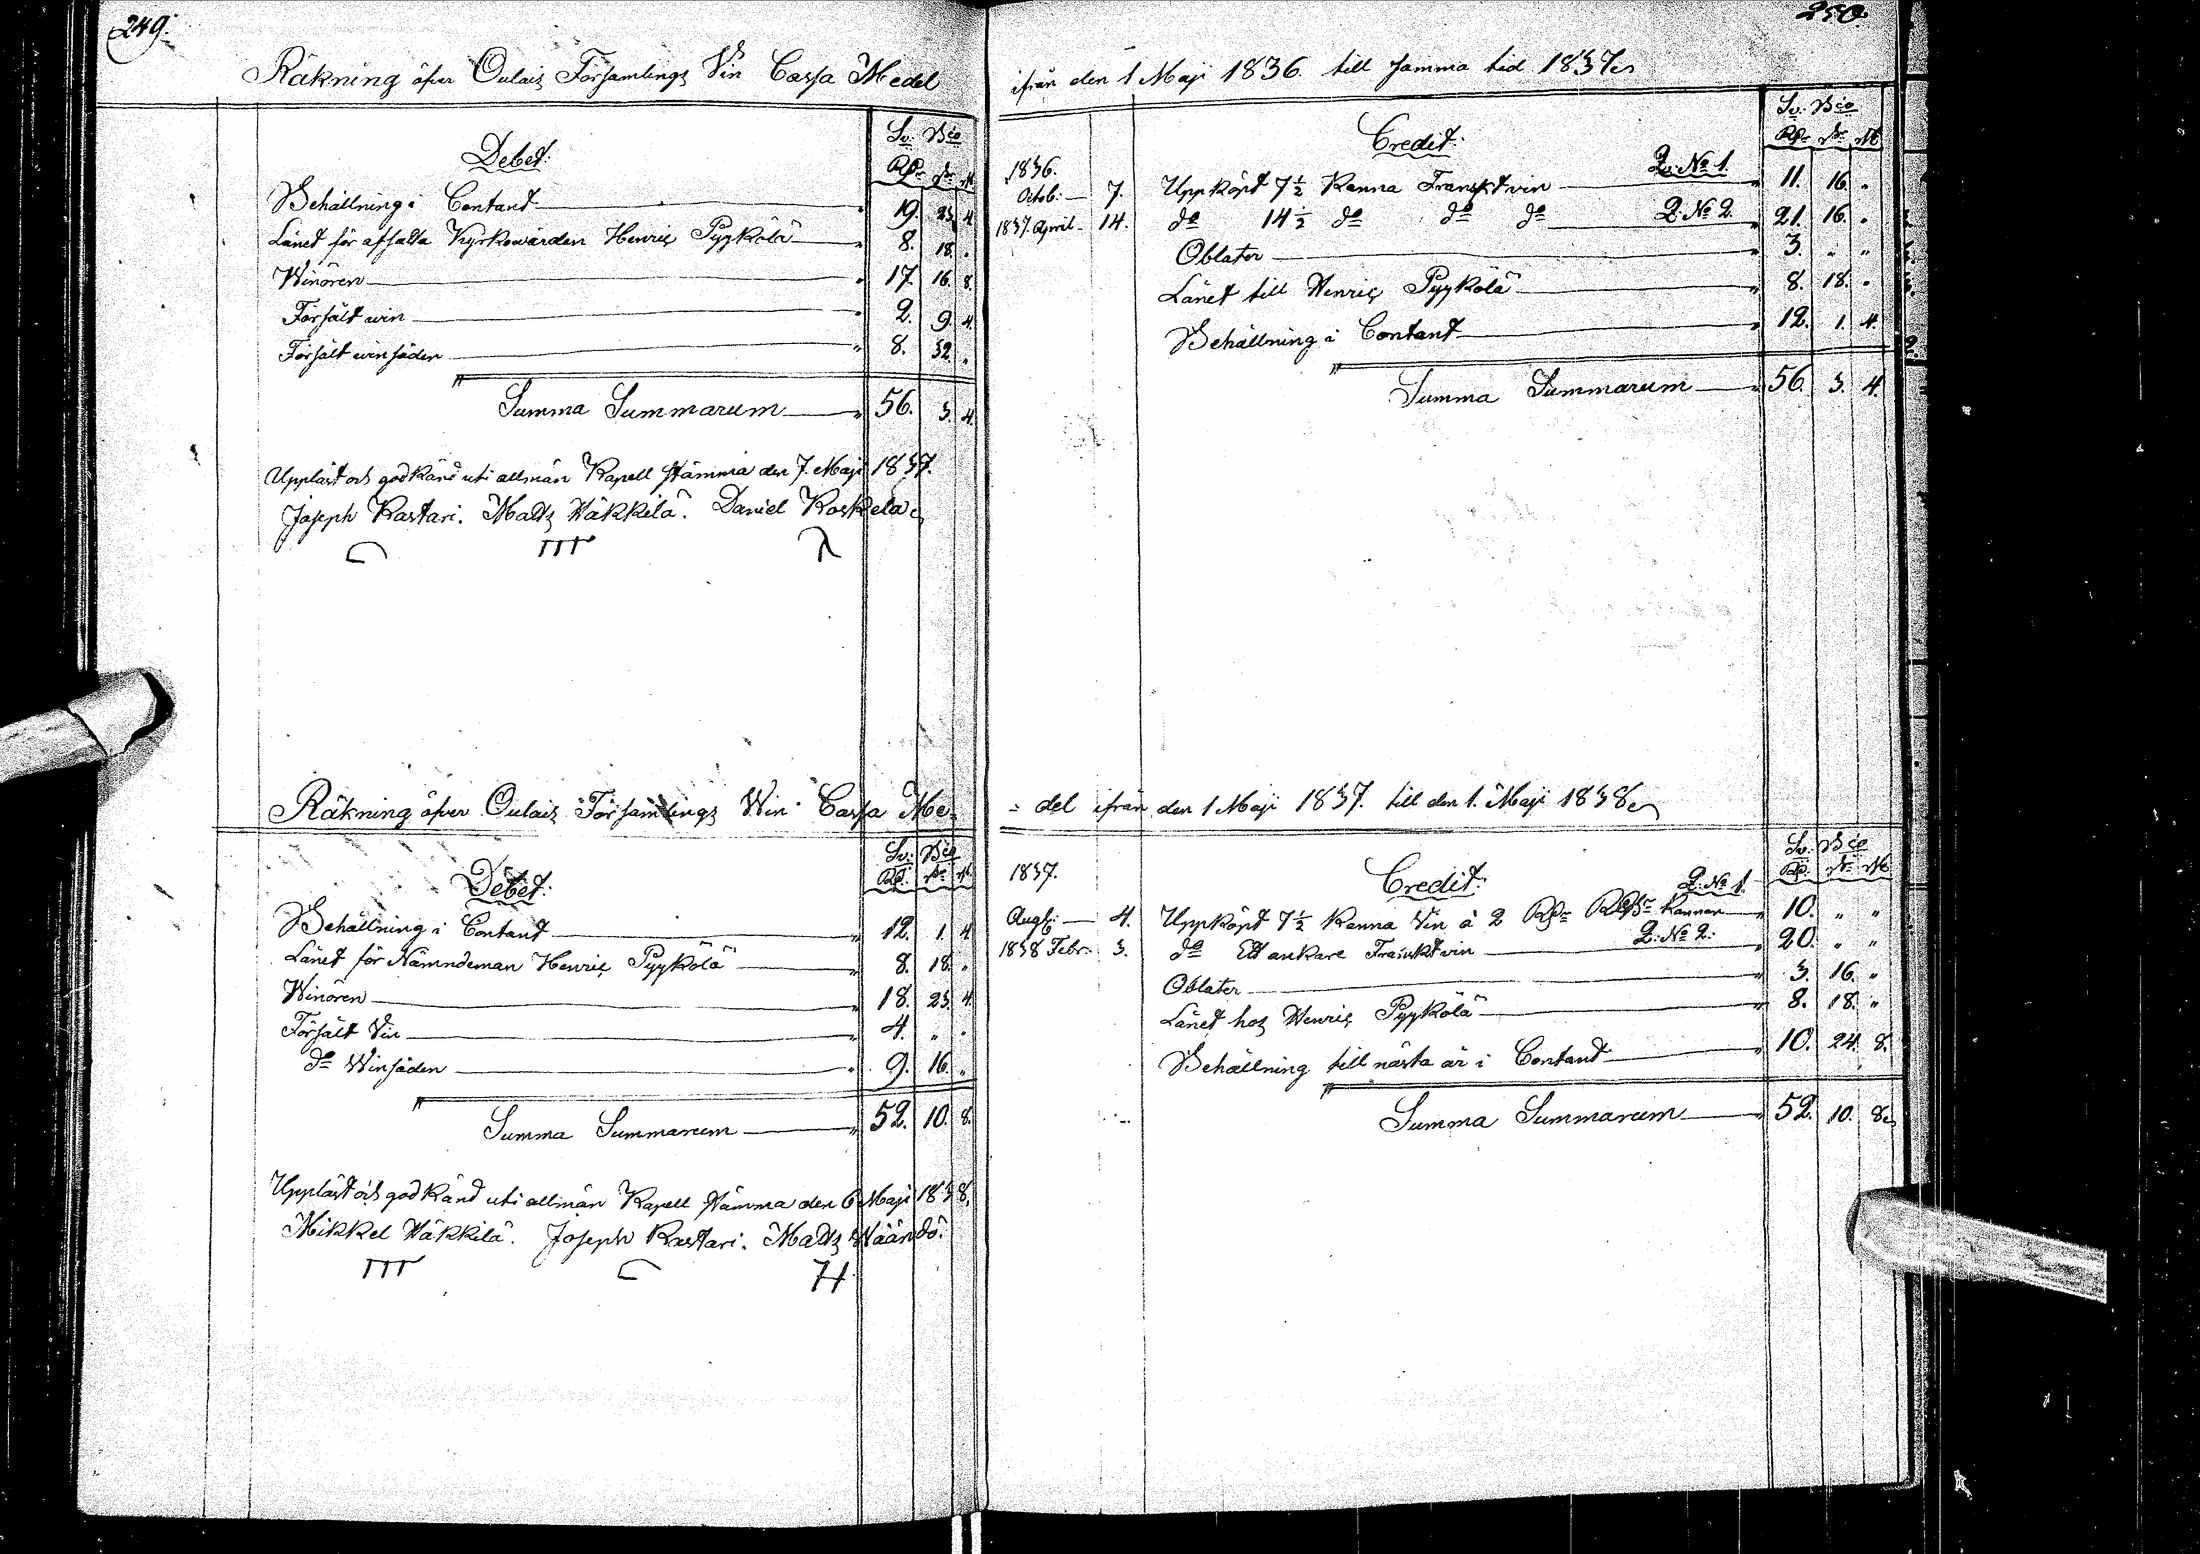 249.
Räkning öfver Oulais Församlings Vin Cassa Medel
Debet:
Sv. Bco
Rdr sk. rst
Behållning i Contant 19. 23. 4.
Lånet för aflidna Kyrkowärden Henric Pyykölä 8. 18. "
Winören 17. 16. 8.
Försält win 2. 9. 4.
Försält winsäden 8. 32. "
Summa Summarum 56. 3. 4.
Uppläst och godkänd uti allmän Kapell Stämma den 7. Maji 1837.
Joseph Rastari. Matts Häkkilä. Daniel Koskela
250.
ifrån den 1 Maji 1836. till samma tid 1837.
Credit:
Sv. Bco
Rdr sk. rst
1836. Q. No 1.
Octob. 7. Uppköpt 7½ Kanna Franskt vin 11. 16. "
1837 April 14. do 14½ do do do Q. No 2. 21. 16. "
Oblater 3. " "
Lånet till Henric Pyykölä 8. 18. "
Behållning i Contant 12. 1. 4.
Summa Summarum 56. 3. 4.
Räkning öfver Oulais Församlings Win Cassa Me-
Debet:
Sv. Bco
Rdr sk. rst
Behållning i Contant 12. 1. 4
Lånet för Nämndeman Henric Pyykölä 8. 18. "
Winören 18. 23. 4.
Försält Vin 4. " "
do Winsäden 9. 16. "
Summa Summarum 52. 10. 8.
Uppläst och godkänd uti allmän Kapell Stämma den 6 Maji 1838.
Mikkel Häkkilä. Joseph Rastari. Matts
H
- del ifrån den 1 Maji 1837. till den 1. Maji 1838.
Credit:
Sv. Bco
Rdr sk. rst
1837. Q. No 1.
Aug. 4. Uppköpt 7½ Kanna Vin à 2 Rdr Kannan 10. " "
1838 Febr. 3. do Ett ankare Franskt vin Q. No 2. 20. " "
Oblater 3. 16. "
Lånet hos Henric Pyykölä 8. 18. "
Behållning till nästa år i Contant 10. 24. 8.
Summa Summarum 52. 10. 8.